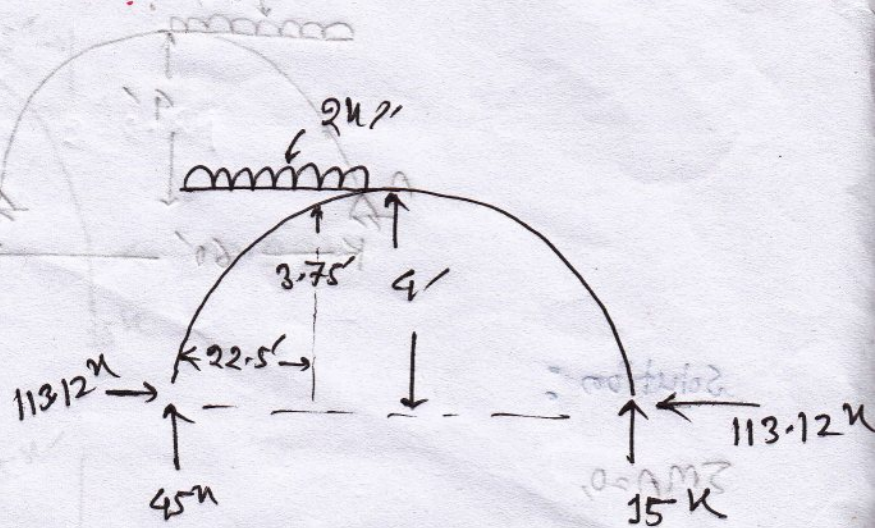 2k/'
3.75'
4'
22.5'
113.12k
113.12k
45k
15k